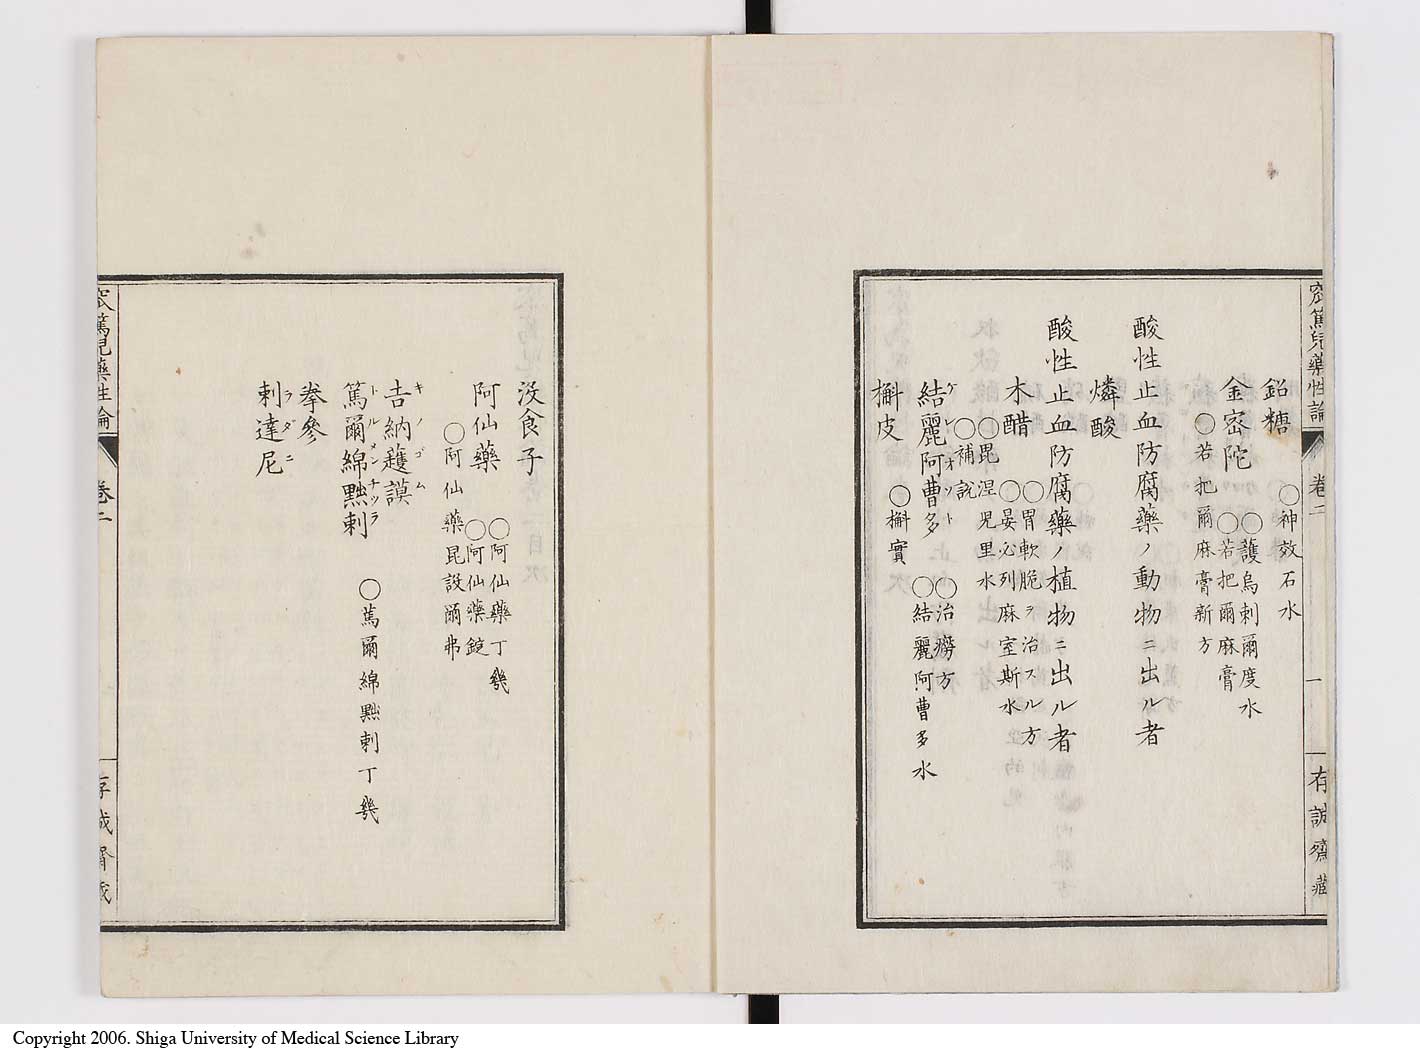 窊篤兒藥性論 卷二 一 有誠齋藏
鉛糖 ○神效石水
金密陀 ○護烏刺爾度水 ○若把爾麻膏
○若把爾麻膏新方
酸性止血防腐藥ノ動物ニ出ル者
燐酸
酸性止血防腐藥ノ植物ニ出ル者
木醋 ○胃軟脆ヲ治スル方 ○晏必列麻室斯水
○毘涅児里水 ○補説
結麗阿曹多 ○治癆方 ○結麗阿曹多水
ケレヲソート
槲皮 ○槲實
没食子
阿仙藥 ○阿仙藥丁幾 ○阿仙藥錠
○阿仙藥昆設爾弗
吉納護謨
キノゴム
篤爾綿黙剌 ○篤爾綿黙剌丁幾
トルメンチッラ
拳參
剌達尼
ラダニ
窊篤兒藥性論 卷二
Copyright 2006. Shiga University of Medical Science Library